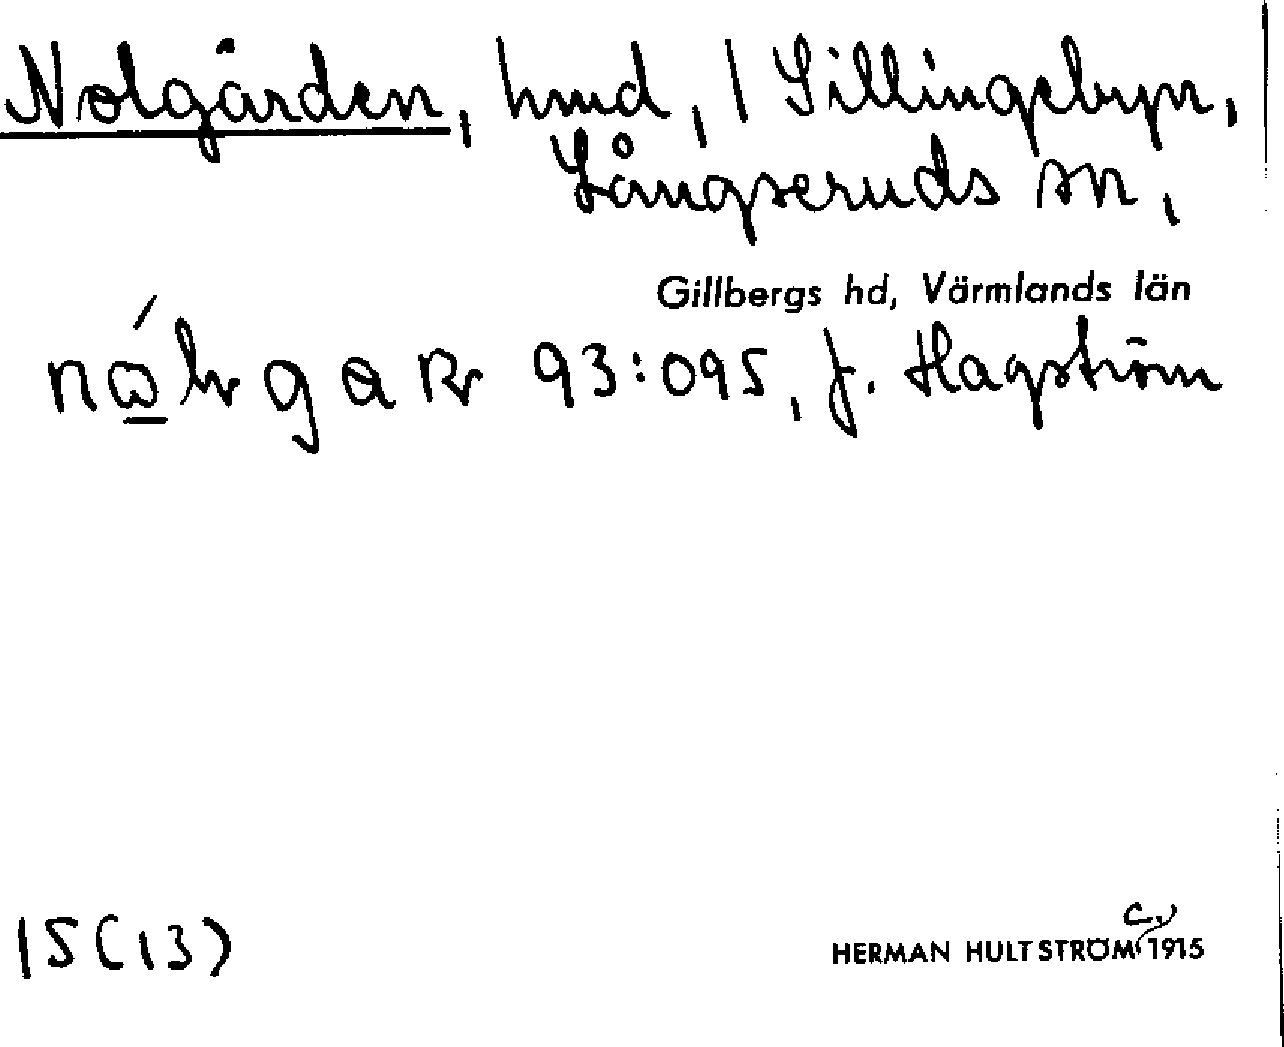 Nolgården, hmd, i Sillingebyn,
Långseruds sn,
Gillbergs hd, Värmlands län
93:095, J. Hagström
15(13)
HERMAN HULTSTRÖM c. 1915